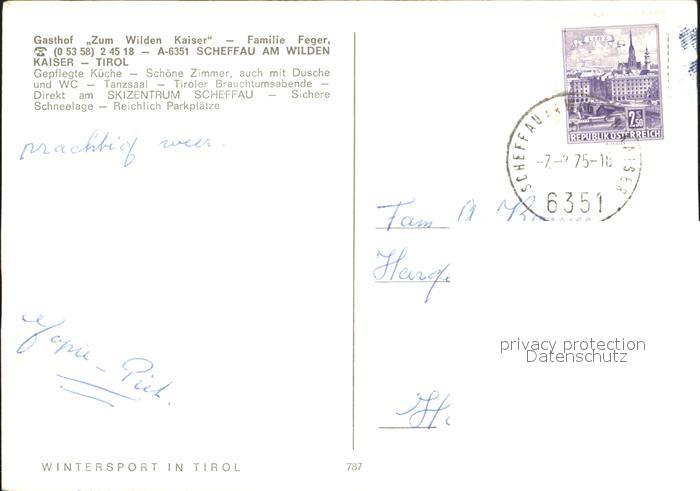 Gasthof „Zum Wilden Kaiser" — Familie Feger,
☎ (0 53 58) 2 45 18 — A-6351 SCHEFFAU AM WILDEN
KAISER — TIROL
Gepflegte Küche — Schöne Zimmer, auch mit Dusche
und WC — Tanzsaal — Tiroler Brauchtumsabende —
Direkt am SKIZENTRUM SCHEFFAU — Sichere
Schneelage — Reichlich Parkplätze
prachtig weer.
LINZ
2.50
REPUBLIK ÖSTERREICH
SCHEFFAU
75-18
6351
Fam
privacy protection
Datenschutz
Piet.
WINTERSPORT IN TIROL
787